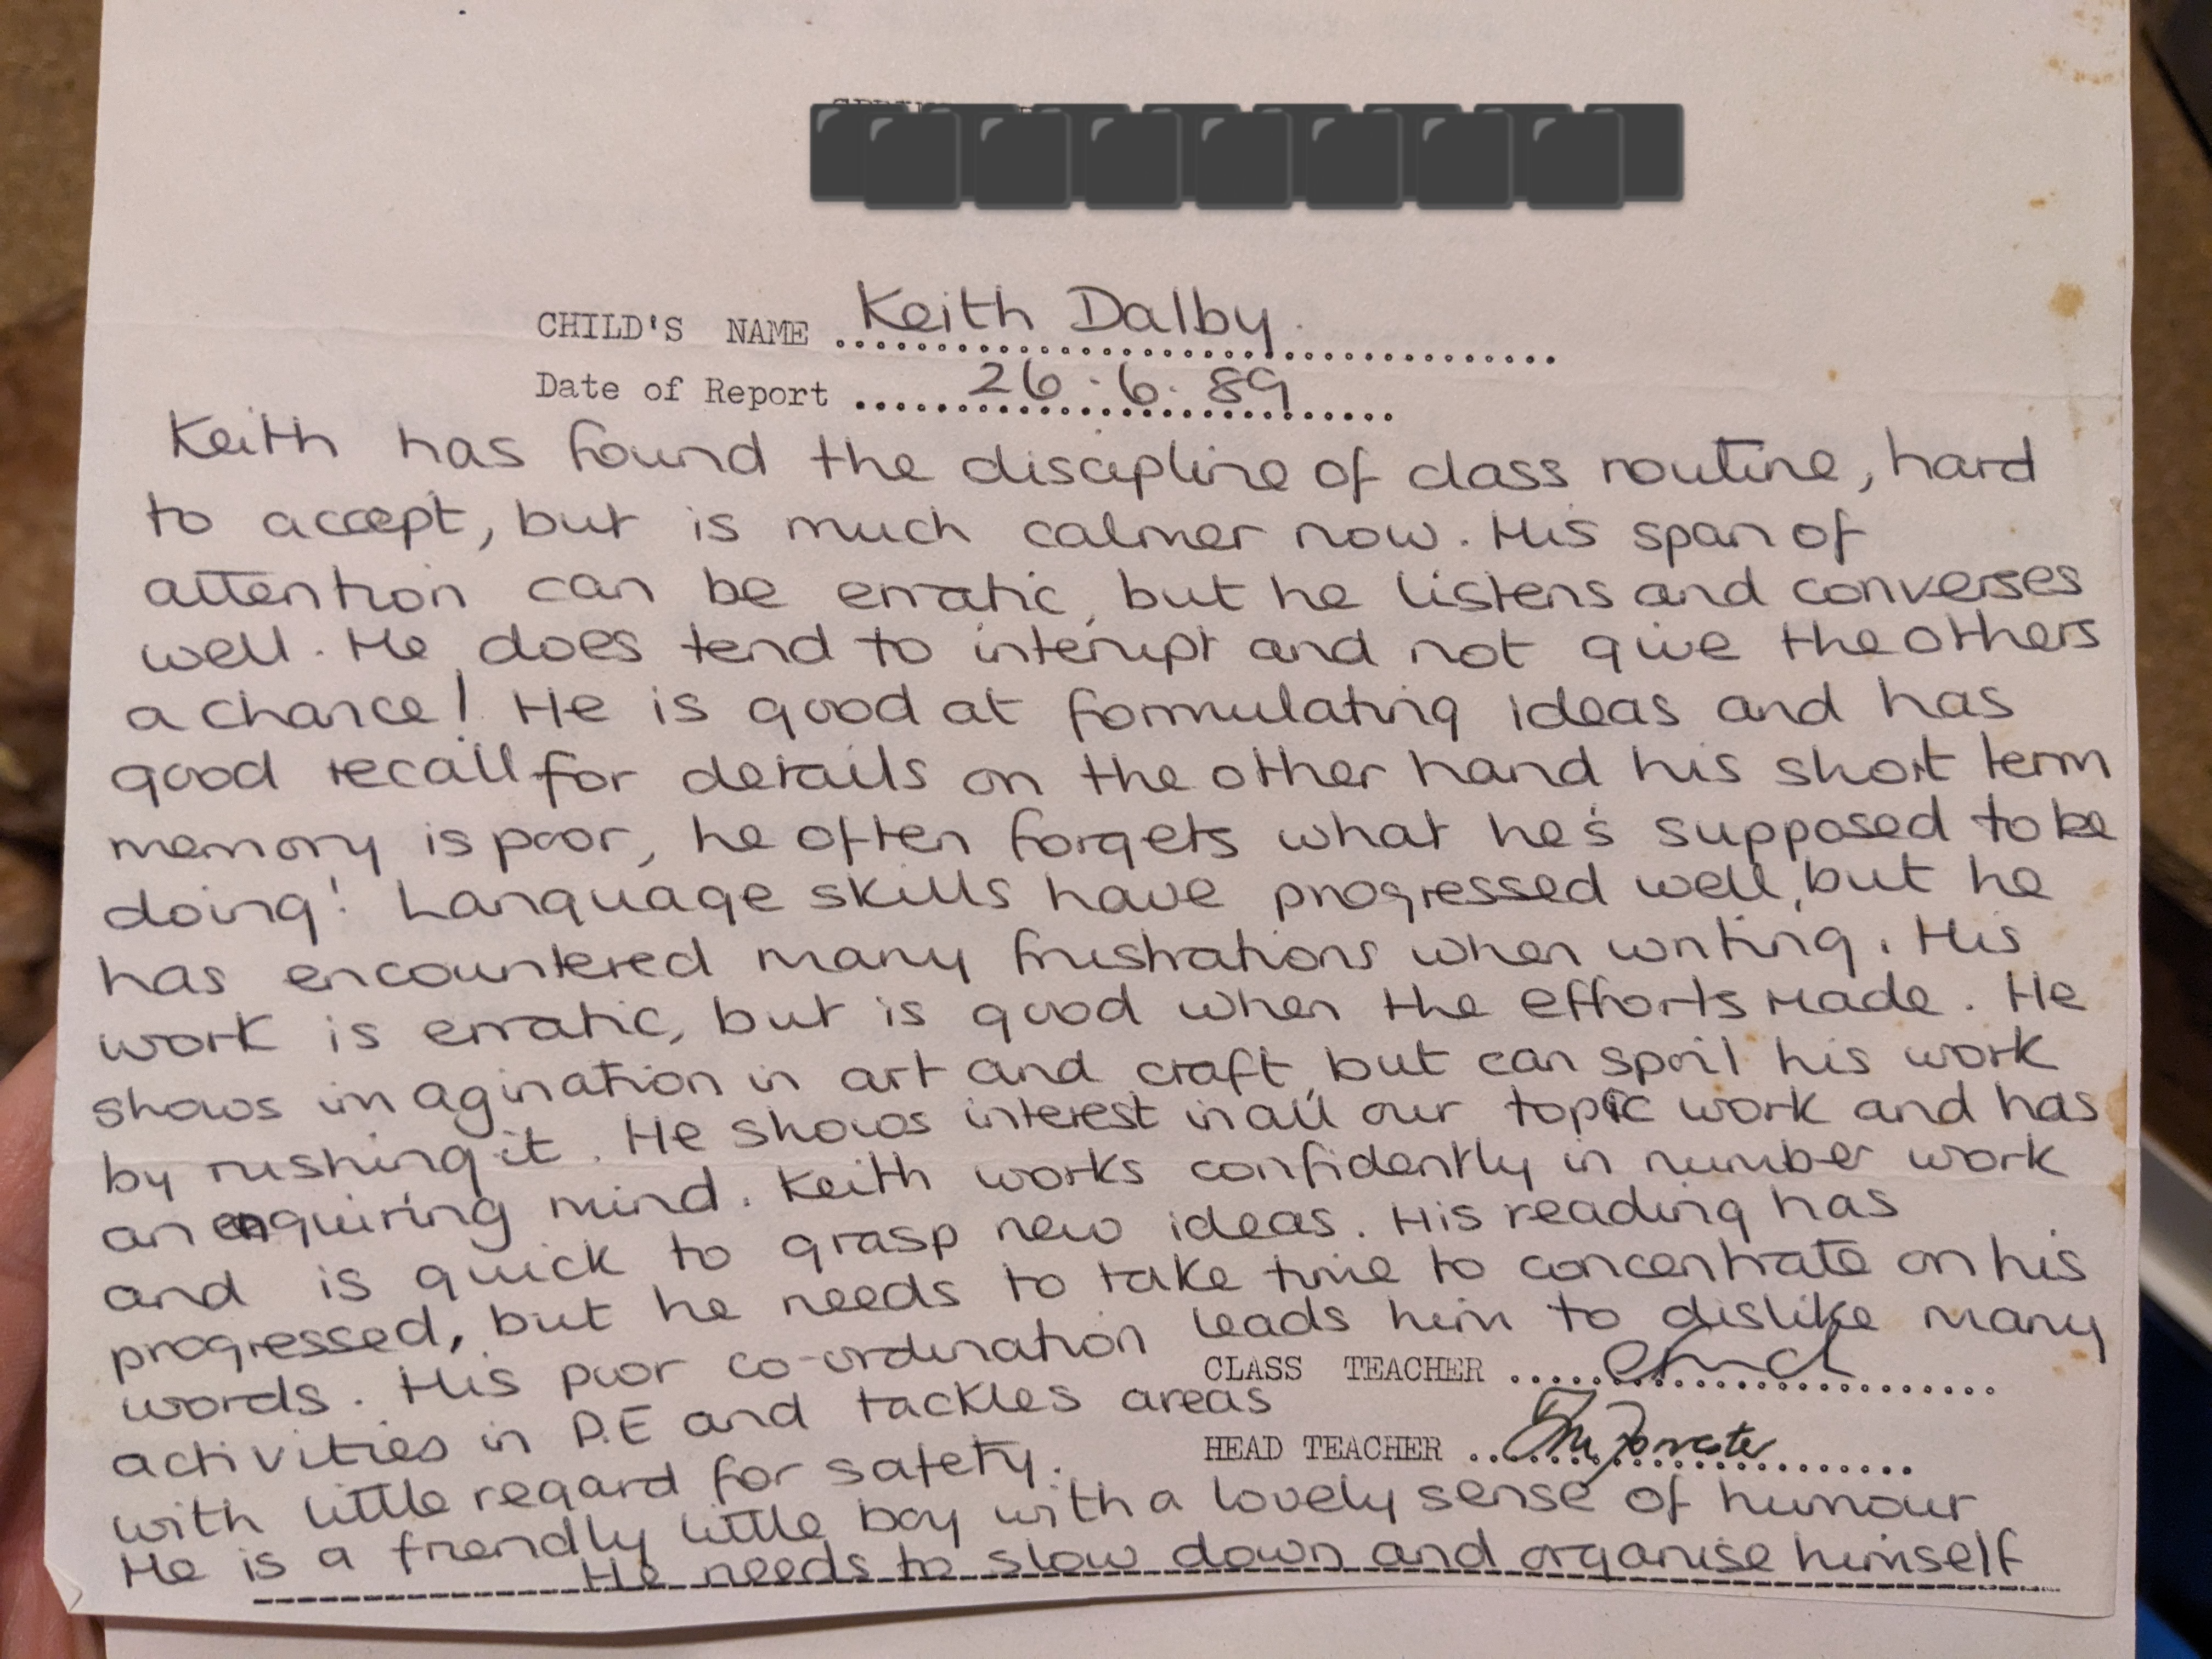 CHILD'S NAME Keith Dalby.
Date of Report 26.6.89
Keith has found the discipline of class routine, hard
to accept, but is much calmer now. His span of
attention can be erratic, but he listens and converses
well. He does tend to interupt and not give the others
a chance! He is good at formulating ideas and has
good recall for details on the other hand his short term
memory is poor, he often forgets what he's supposed to be
doing! Language skills have progressed well, but he
has encountered many frustrations when writing. His
work is erratic, but is good when the efforts made. He
shows imagination in art and craft, but can spoil his work
by rushing it. He shows interest in all our topic work and has
an enquiring mind. Keith works confidently in number work
and is quick to grasp new ideas. His reading has
progressed, but he needs to take time to concentrate on his
words. His poor co-ordination leads him to dislike many
CLASS TEACHER
activities in P.E and tackles areas
HEAD TEACHER
with little regard for safety.
He is a friendly little boy with a lovely sense of humour
He needs to slow down and organise himself